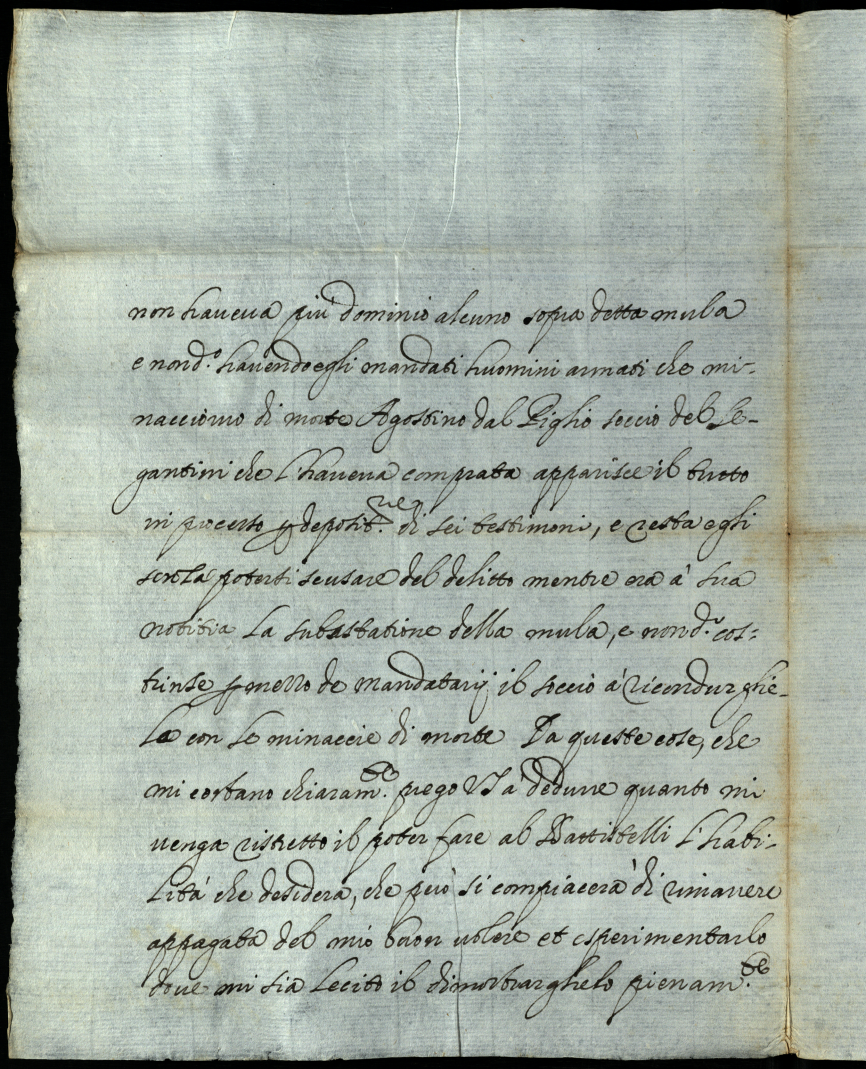 non haueua più dominio alcuno sopra detta mula
e nond.o hauendo egli mandati huomini armati che mi-
nacciorno di morte Agostino dal Piglio soccio del Se-
gantini che l'haueua comprata apparisce il tutto
in processo p deposit.ne di sei testimoni, e resta egli
senza poterti scusare del delitto mentre era à sua
notitia la subastatione della mula, e nond.o cos-
trinse p mezzo de mandatarij il soccio à ricondurghie-
la con le minaccie di morte Da queste cose, che
mi costano chiaram.te prego VS à dedurre quanto mi
uenga ristretto il poter fare al Battistelli l'habi-
lità che desidera, che però si compiacerà di rimanere
appagata del mio buon uolere et esperimentarlo
doue mi sia lecito il dimostrarghelo pienam.te